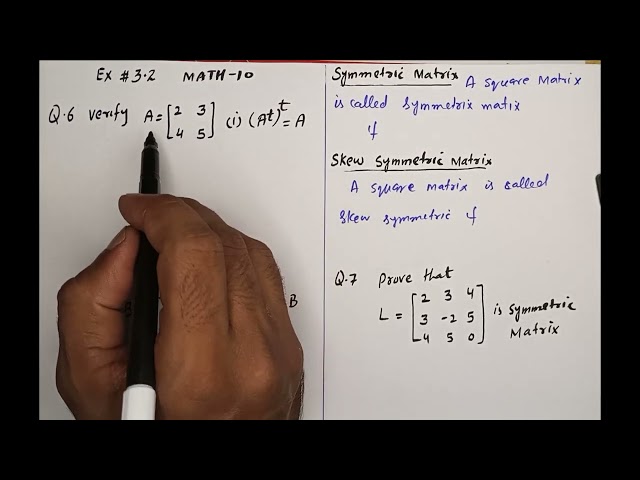 Ex # 3.2 MATH-10
Q.6 Verify A = [2 3
4 5] (i) (Aᵗ)ᵗ = A
B
Symmetric Matrix A square Matrix
is called symmetrix matix
if
Skew Symmetric Matrix
A square matrix is called
skew symmetric if
Q.7 Prove that
L = [2 3 4
3 -2 5
4 5 0] is symmetric
Matrix